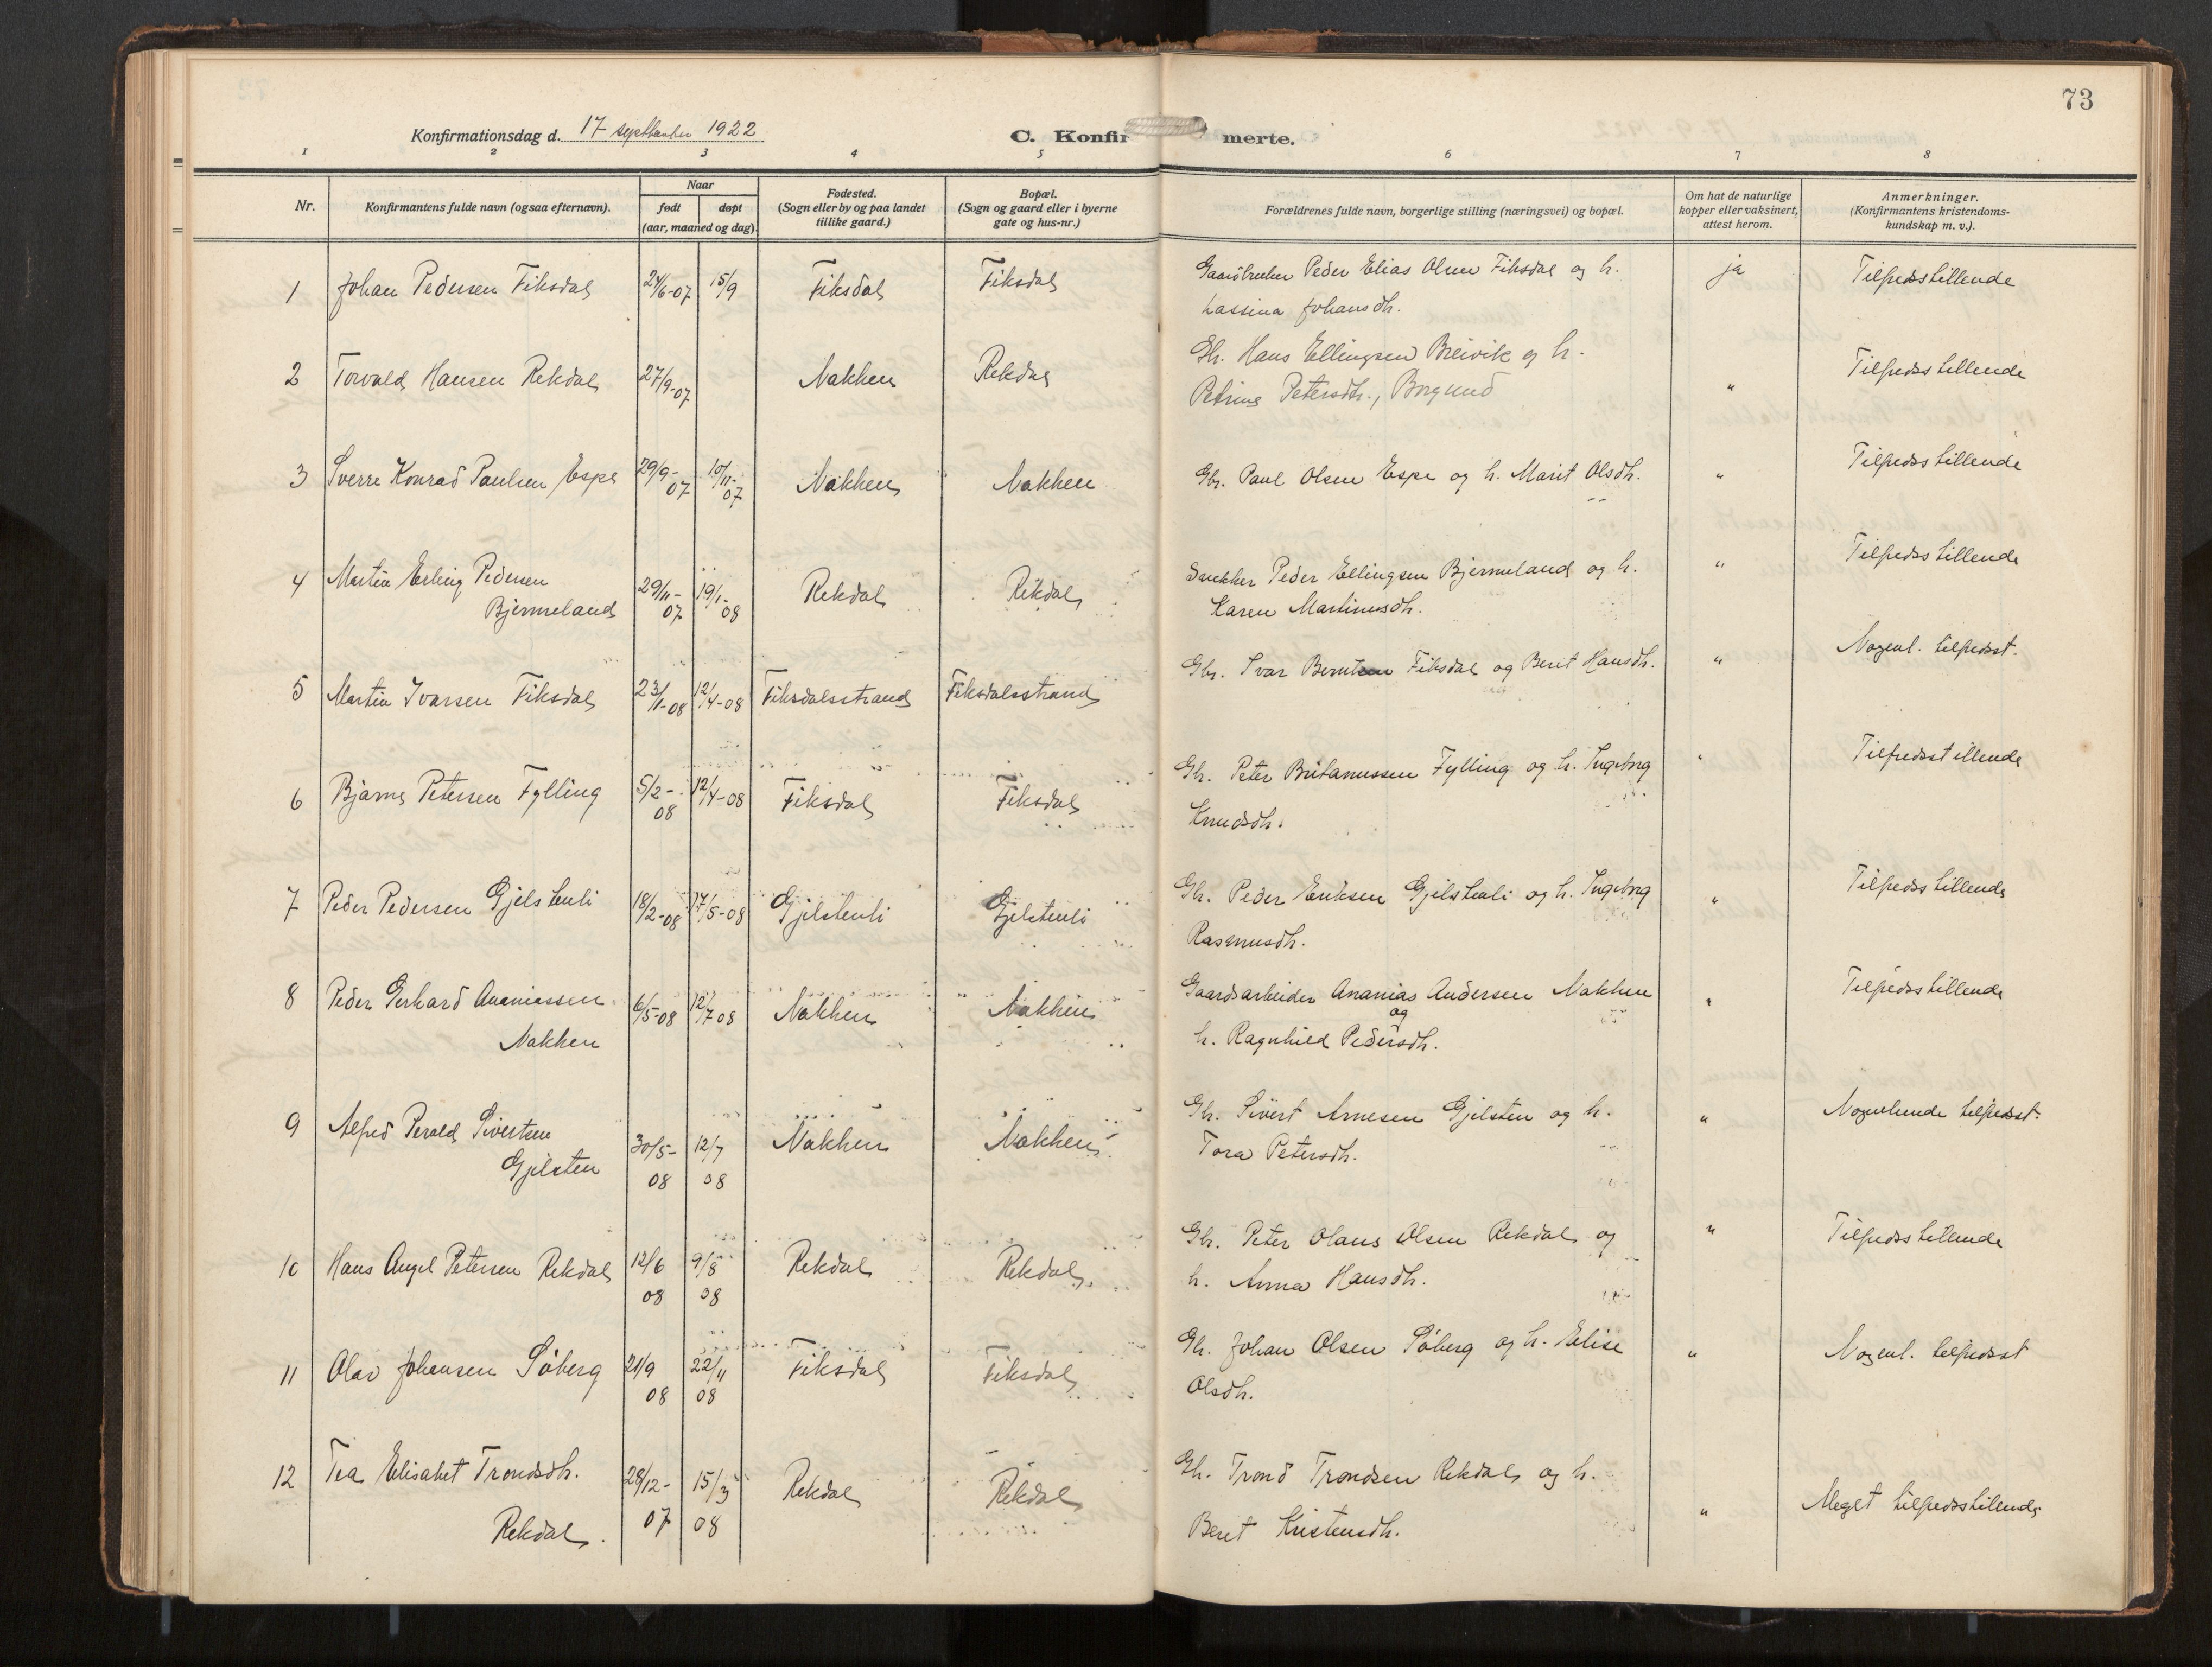 73
Konfirmationsdag d. 17 septbember 1922
C. Konfirmerte.
1 2 3 4 5 6 7 8
Nr.
Konfirmantens fulde navn (ogsaa efternavn).
Naar
født
døpt
(aar, maaned og dag).
Fødested.
(Sogn eller by og paa landet
tillike gaard.)
Bopæl.
(Sogn og gaard eller i byerne
gate og hus-nr.)
Forældrenes fulde navn, borgerlige stilling (næringsvei) og bopæl.
Om hat de naturlige
kopper eller vaksinert,
attest herom.
Anmerkninger.
(Konfirmantens kristendoms-
kundskap m. v.).
1 Johan Pedersen Fiksdal 24/6-07 15/9 Fiksdal Fiksdal Gaardbruker Peder Elias Olsen Fiksdal og h. ja Tilfredsstillende
Lassina Johansdh.
2 Torvald Hansen Rekdal 27/9-07 Nakken Rekdal Gbr. Hans Ellingsen Breivik og h. " Tilfredsstillende
Petrine Petersdtr., Borgund
3 Sverre Konrad Paulsen Espe 29/9-07 10/11-07 Nakken Nakken Gbr. Paul Olsen Espe og h. Marit Olsdh. " Tilfredsstillende
4 Martin Erling Pedersen 29/11-07 19/1-08 Rekdal Rekdal Snekker Peder Ellingsen Bjermeland og h. " Tilfredsstillende
Bjermeland Karen Martinusdh.
5 Martin Ivarsen Fiksdal 23/1-08 12/4-08 Fiksdalsstrand Fiksdalsstrand Gbr. Ivar Berntsen Fiksdal og Berit Hansdh. " Nogenl. tilfredsst.
6 Bjarne Petersen Fylling 5/2-08 12/4-08 Fiksdal Fiksdal Gbr. Peter Britanussen Fylling og h. Ingeborg " Tilfredsstillende
Knudsdh.
7 Peder Pedersen Gjelstenli 18/2-08 17/5-08 Gjelstenli Gjelstenli Gbr. Peder Eriksen Gjelstenli og h. Ingeborg " Tilfredsstillende
Rasmusdh.
8 Peder Gerhard Ananiassen 6/5-08 12/7 08 Nakken Nakken Gaardsarbeider Ananias Andersen Nakken " Tilfredsstillende
Nakken og
h. Ragnhild Pedersdh.
9 Alfred Perald Sivertsen 30/5-08 12/7 08 Nakken Nakken Gbr. Sivert Arnesen Gjelsten og h. " Nogenlunde tilfredsst.
Gjelsten Tora Petersdh.
10 Hans Angel Petersen Rekdal 12/6 08 9/8 08 Rekdal Rekdal Gbr. Peter Olaus Olsen Rekdal og " Tilfredsstillende
h. Anna Hansdh.
11 Olav Johansen Søberg 21/9 08 22/11 08 Fiksdal Fiksdal Gbr. Johan Olsen Søberg og h. Elise " Nogenl. tilfredsst
Olsdh.
12 Tea Elisabet Trondsdh. 28/12-07 15/3 08 Rekdal Rekdal Gbr. Trond Trondsen Rekdal og h. " Meget tilfredsstillende
Rekdal. Beret Kristensdh.